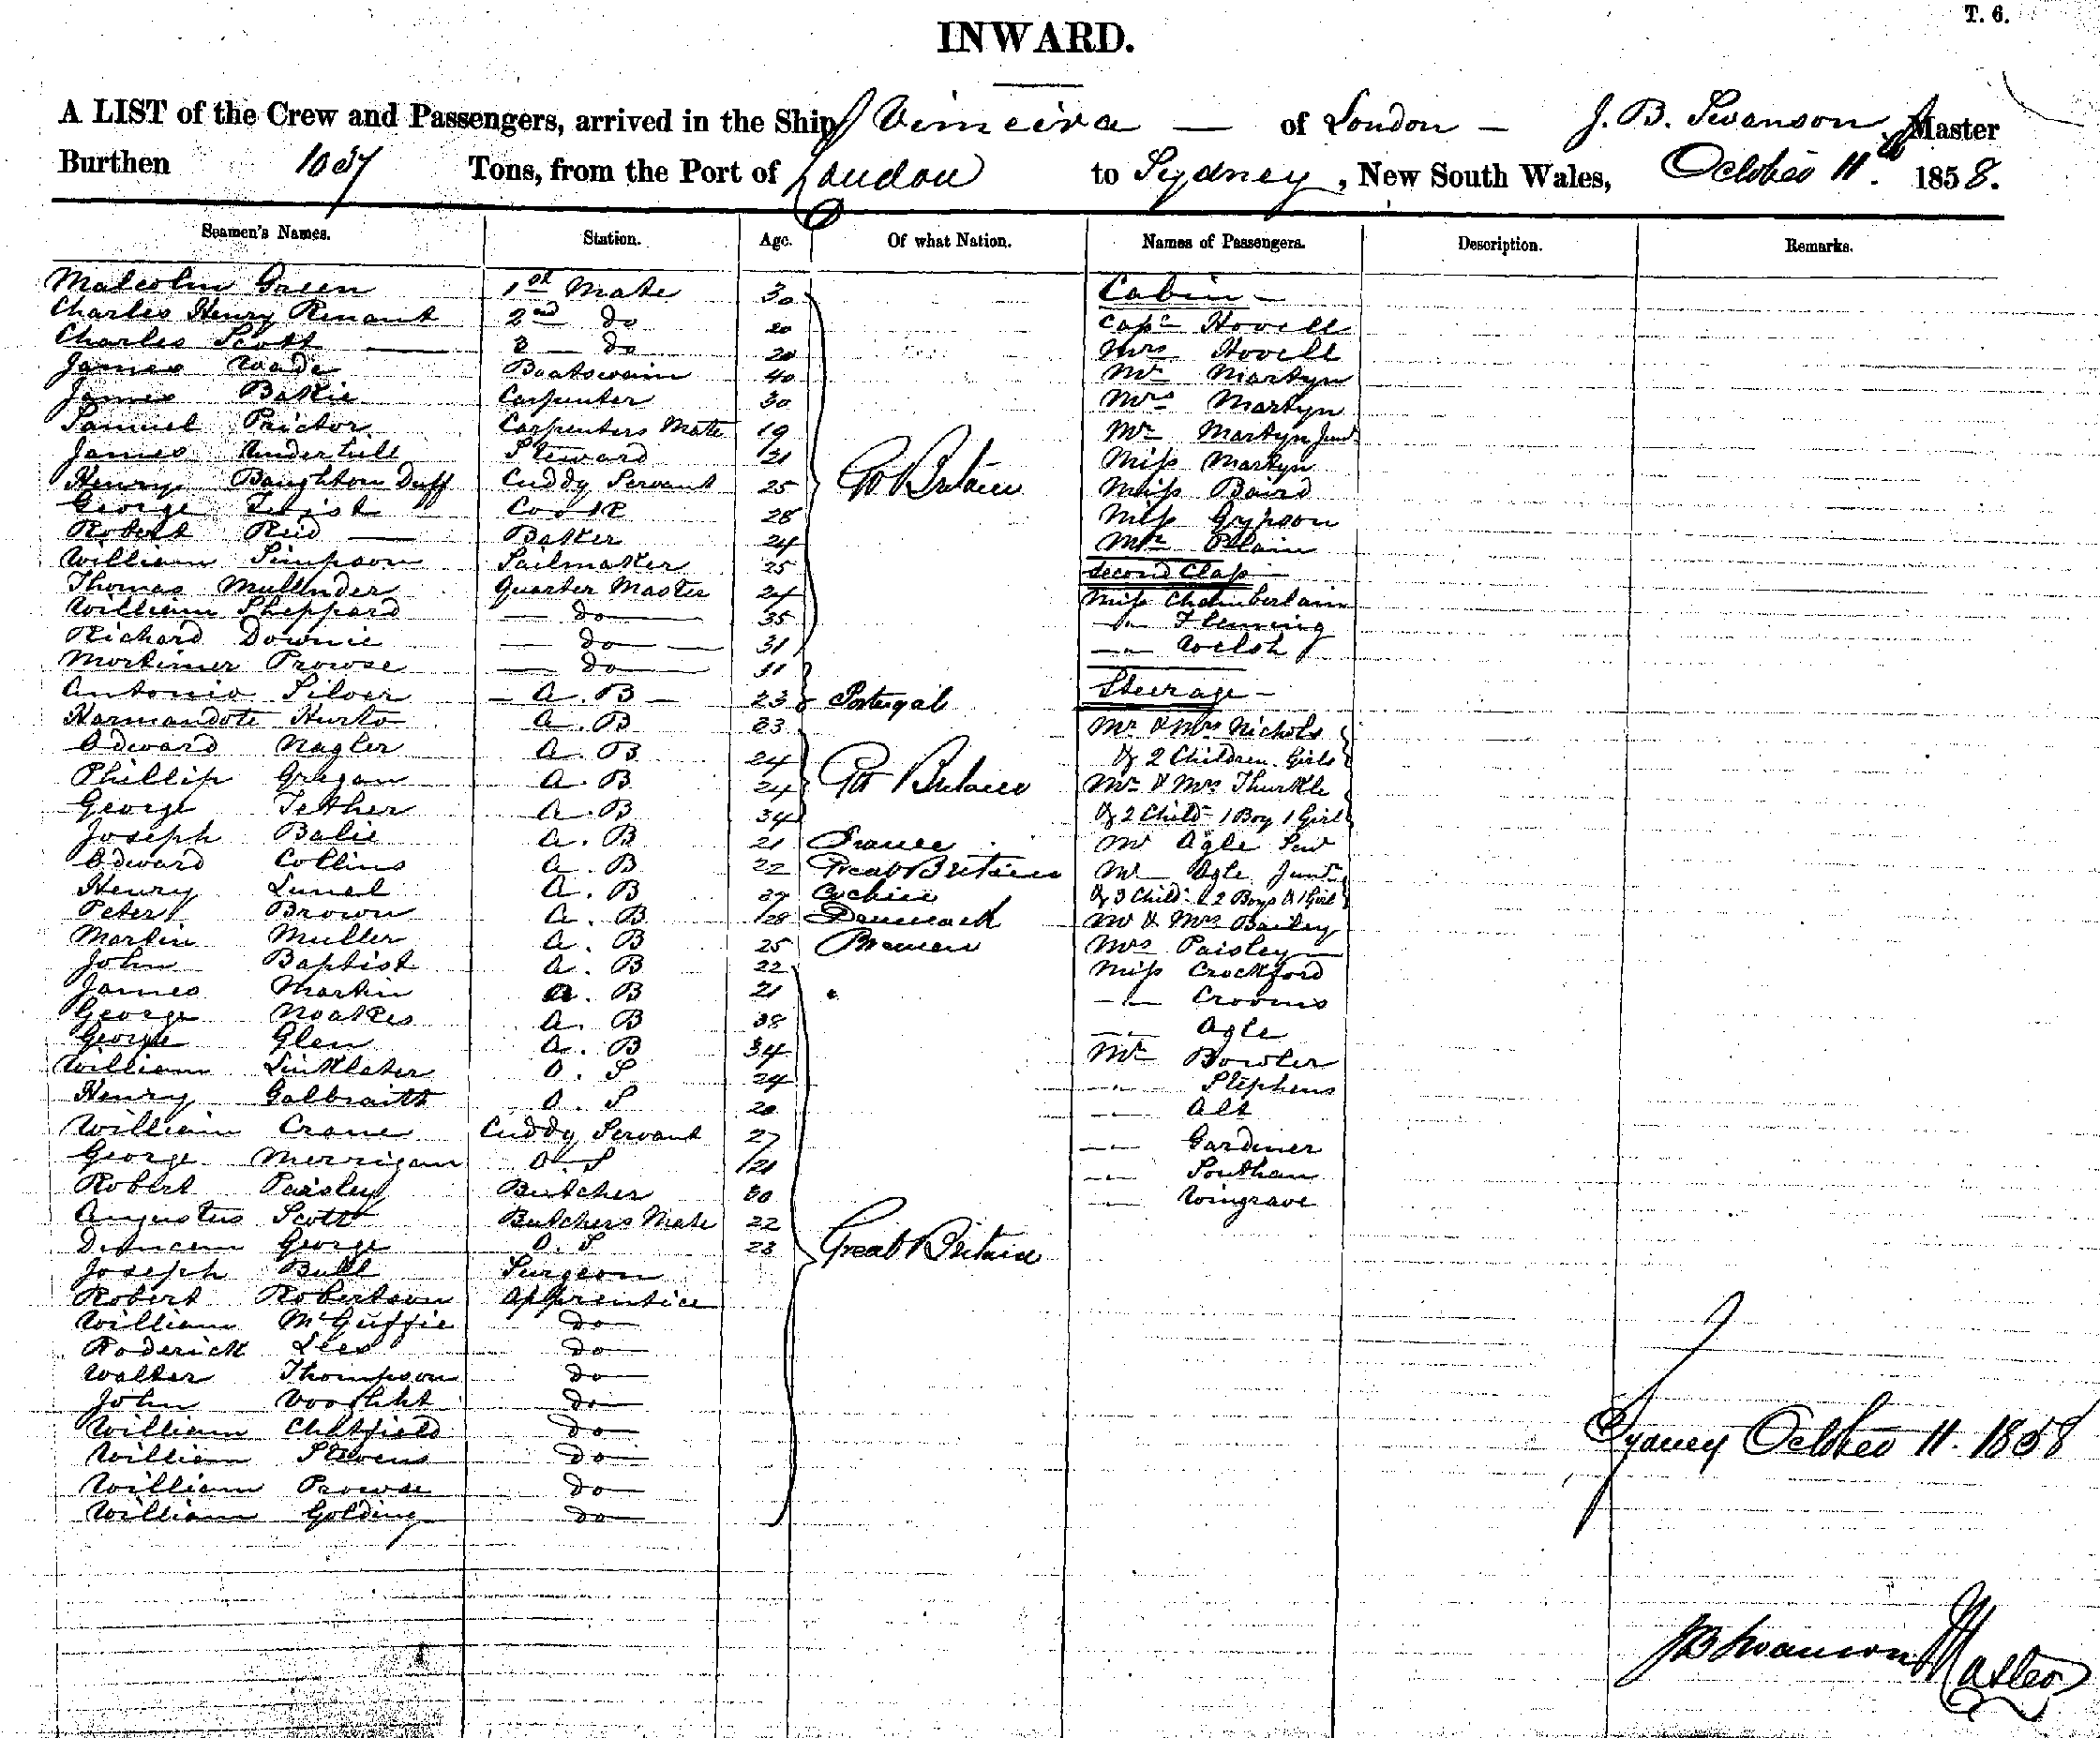 T. 6.
INWARD.
A LIST of the Crew and Passengers, arrived in the Ship Vimeira — of London — J. B. Swanson Master
Burthen 1037 Tons, from the Port of London to Sydney, New South Wales, October 11th 1858.
Seamen's Names. Station. Age. Of what Nation. Names of Passengers. Description. Remarks.
Malcolm Green 1st Mate 30 Cabin —
Charles Henry Renaut 2nd do 20 Capn Hovell
Charles Scott — 3 — do 20 Mrs Hovell
James Wade Boatswain 40 Mr Martyn
James Bakie Carpenter 30 Mrs Martyn
Samuel Prictor Carpenters Mate 19 Mr Martyn Junr
James Undertull Steward 21 Miss Martyn
Henry Boughton Duff Cuddy Servant 25 Gt Britain Miss Baird
George Twist Cook 28 Miss Gypson
Robert Reid — Baker 24 Mr Blain
William Simpson Sailmaker 25 Second Class
Thomas Mullinder Quarter Master 24 Miss Chamberlain
William Sheppard — do — 35 — " — Fleming
Richard Downie — do — 31 — " — Welsh
Mortimer Prowse — do — 31
Antonio Silver — A. B — 23 & Portugal Steerage —
Harmandote Hurto A. B 23 Mr & Mrs Nichols
Edward Nagler A. B 24 & 2 Children Girls
Phillip Gregan A. B 24 Gt Britain Mr & Mrs Thurkle
George Tether A. B 34 & 2 Child 1 Boy 1 Girl
Joseph Balie A. B 21 France Mr Agle Senr
Edward Collins A. B 22 Great Britain Mr Agle Junr
Henry Lunel A. B 27 Cochin & 3 Child: 2 Boys & 1 Girl
Peter Brown A. B 28 Denmark Mr & Mrs Bailey
Martin Muller A. B 25 Bremen Mrs Paisley —
John Baptist A. B 22 Miss Crockford
James Martin A. B 21 — " — Crooms
George Noakes A. B 38 — " — Agle
George Glen A. B 34 Mr Bowler
William Linklater O. S 24 — " — Stephens
Henry Galbraith O. S 20 — " — Alt
William Crane Cuddy Servant 27 — " — Gardiner
George Merrigan O. S 21 — " — Southan
Robert Paisley Butcher 30 — " — Wingrave
Augustus Scott Butchers Mate 22
Duncan George O. S 23 Great Britain
Joseph Bull Surgeon
Robert Robertson Apprentice
William McGuffie do
Roderick Lees do
Walter Thompson do
John do
William Chatfield do
William Stevens do
William Prowse do
William Golding do
Sydney October 11. 1858
J B Swanson Master